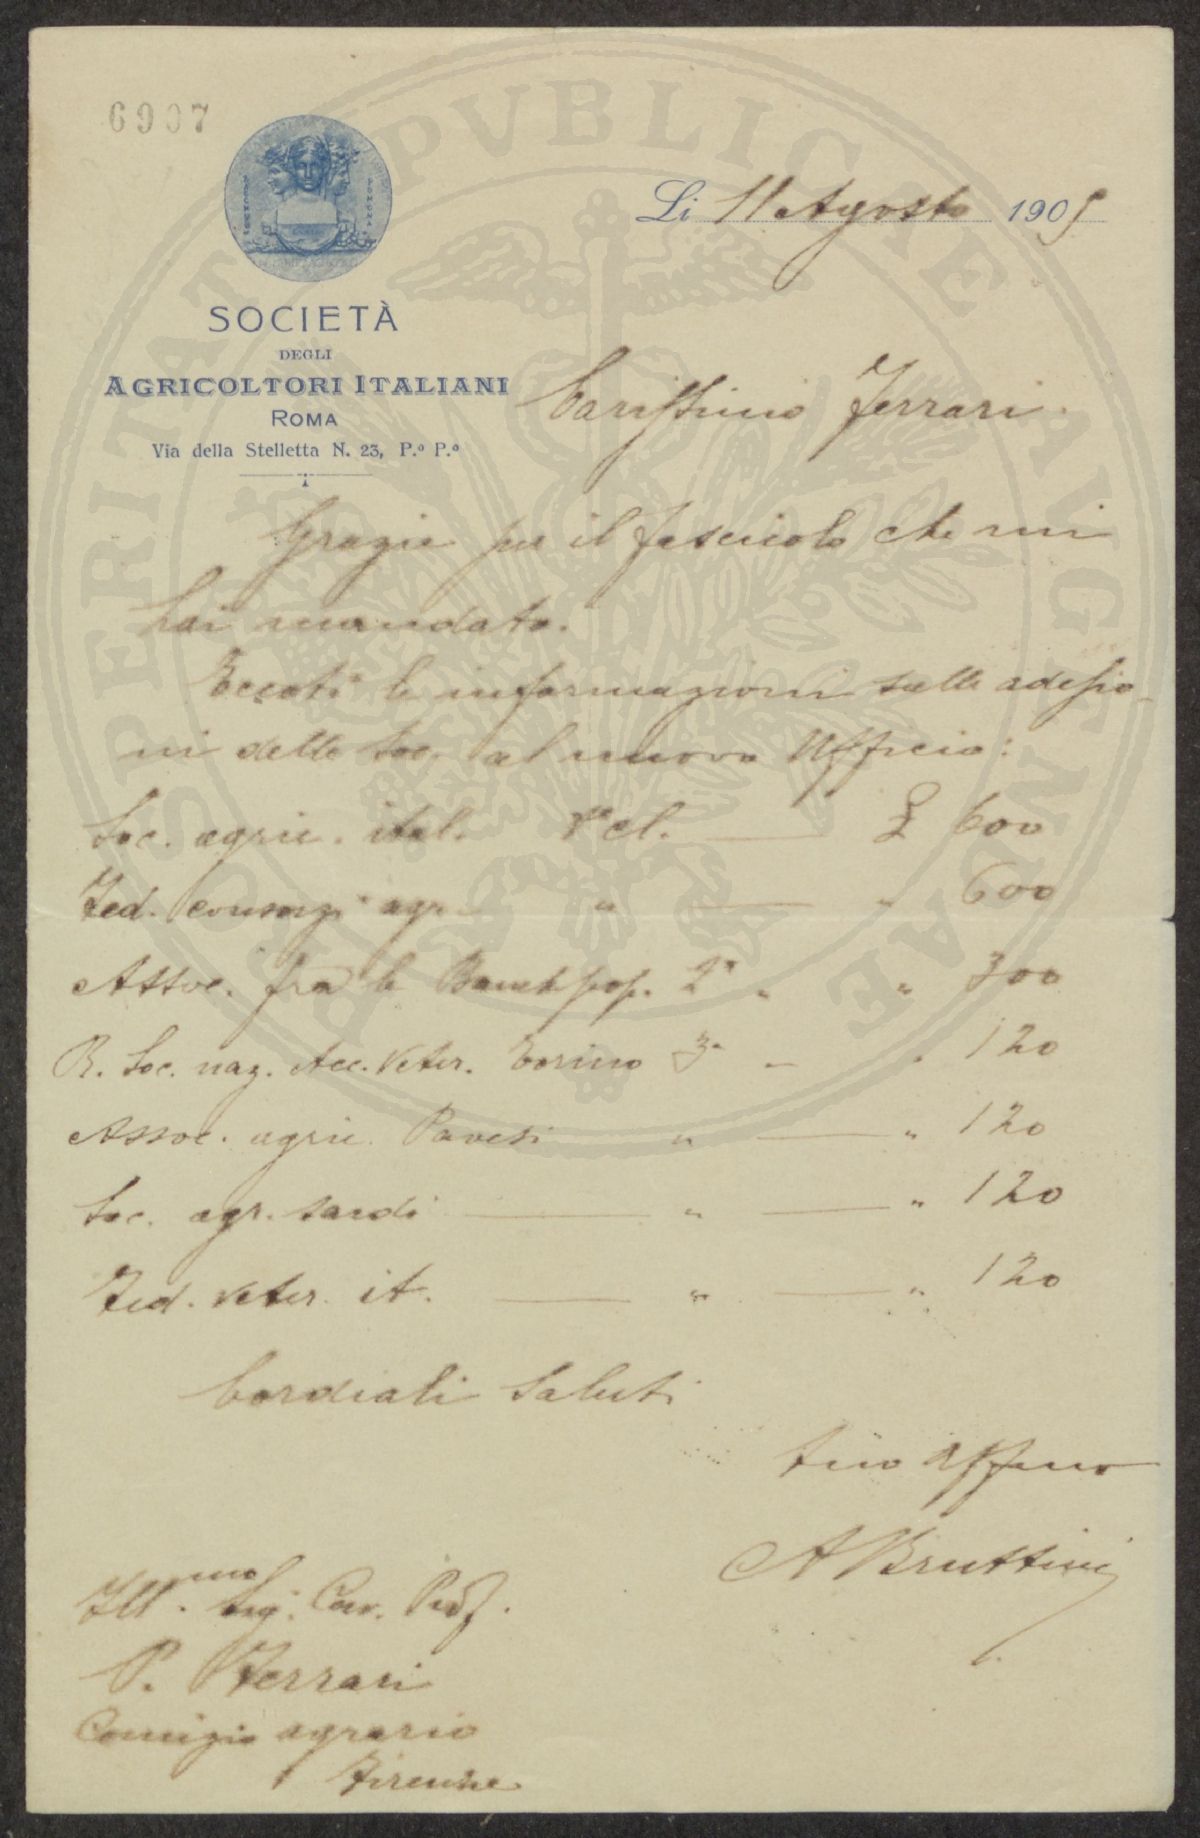 6907
Li 11 Agosto 1905
SOCIETÀ
DEGLI
AGRICOLTORI ITALIANI
ROMA
Via della Stelletta N. 23, P.º P.º
Carissimo Ferrari
Grazie per il fascicolo che mi
hai mandato.
Eccoti le informazioni sulle adesio-
ni delle Soc. al nuovo Ufficio:
Soc. agric. ital. 1ª cl. — £ 600
Fed. consorzi agr. — " — " 600
Assoc. fra le Banche pop. 2ª " " 300
R. Soc. naz. Acc. Veter. Torino 3ª — " 120
Assoc. agric. Pavesi " — " 120
Soc. agr. sardi — " — " 120
Fed. veter. it. — " — " 120
Cordiali saluti
tuo affmo
A Bruttini
Ill.mo Sig. Cav. Prof.
P. Ferrari
Comizio agrario
Firenze
PROSPERITATI PVBLICAE AVGENDAE